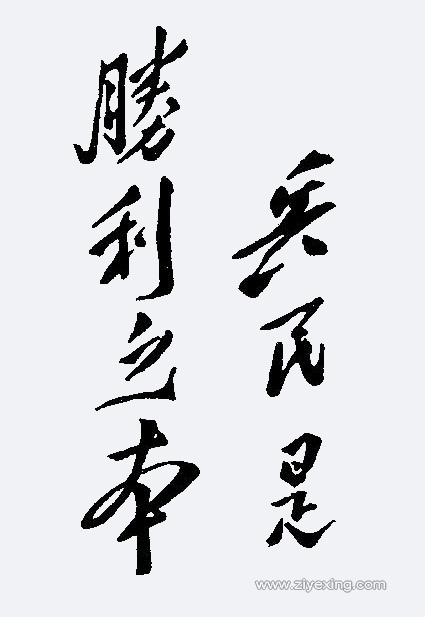 兵民是
勝利之本
www.ziyexing.com